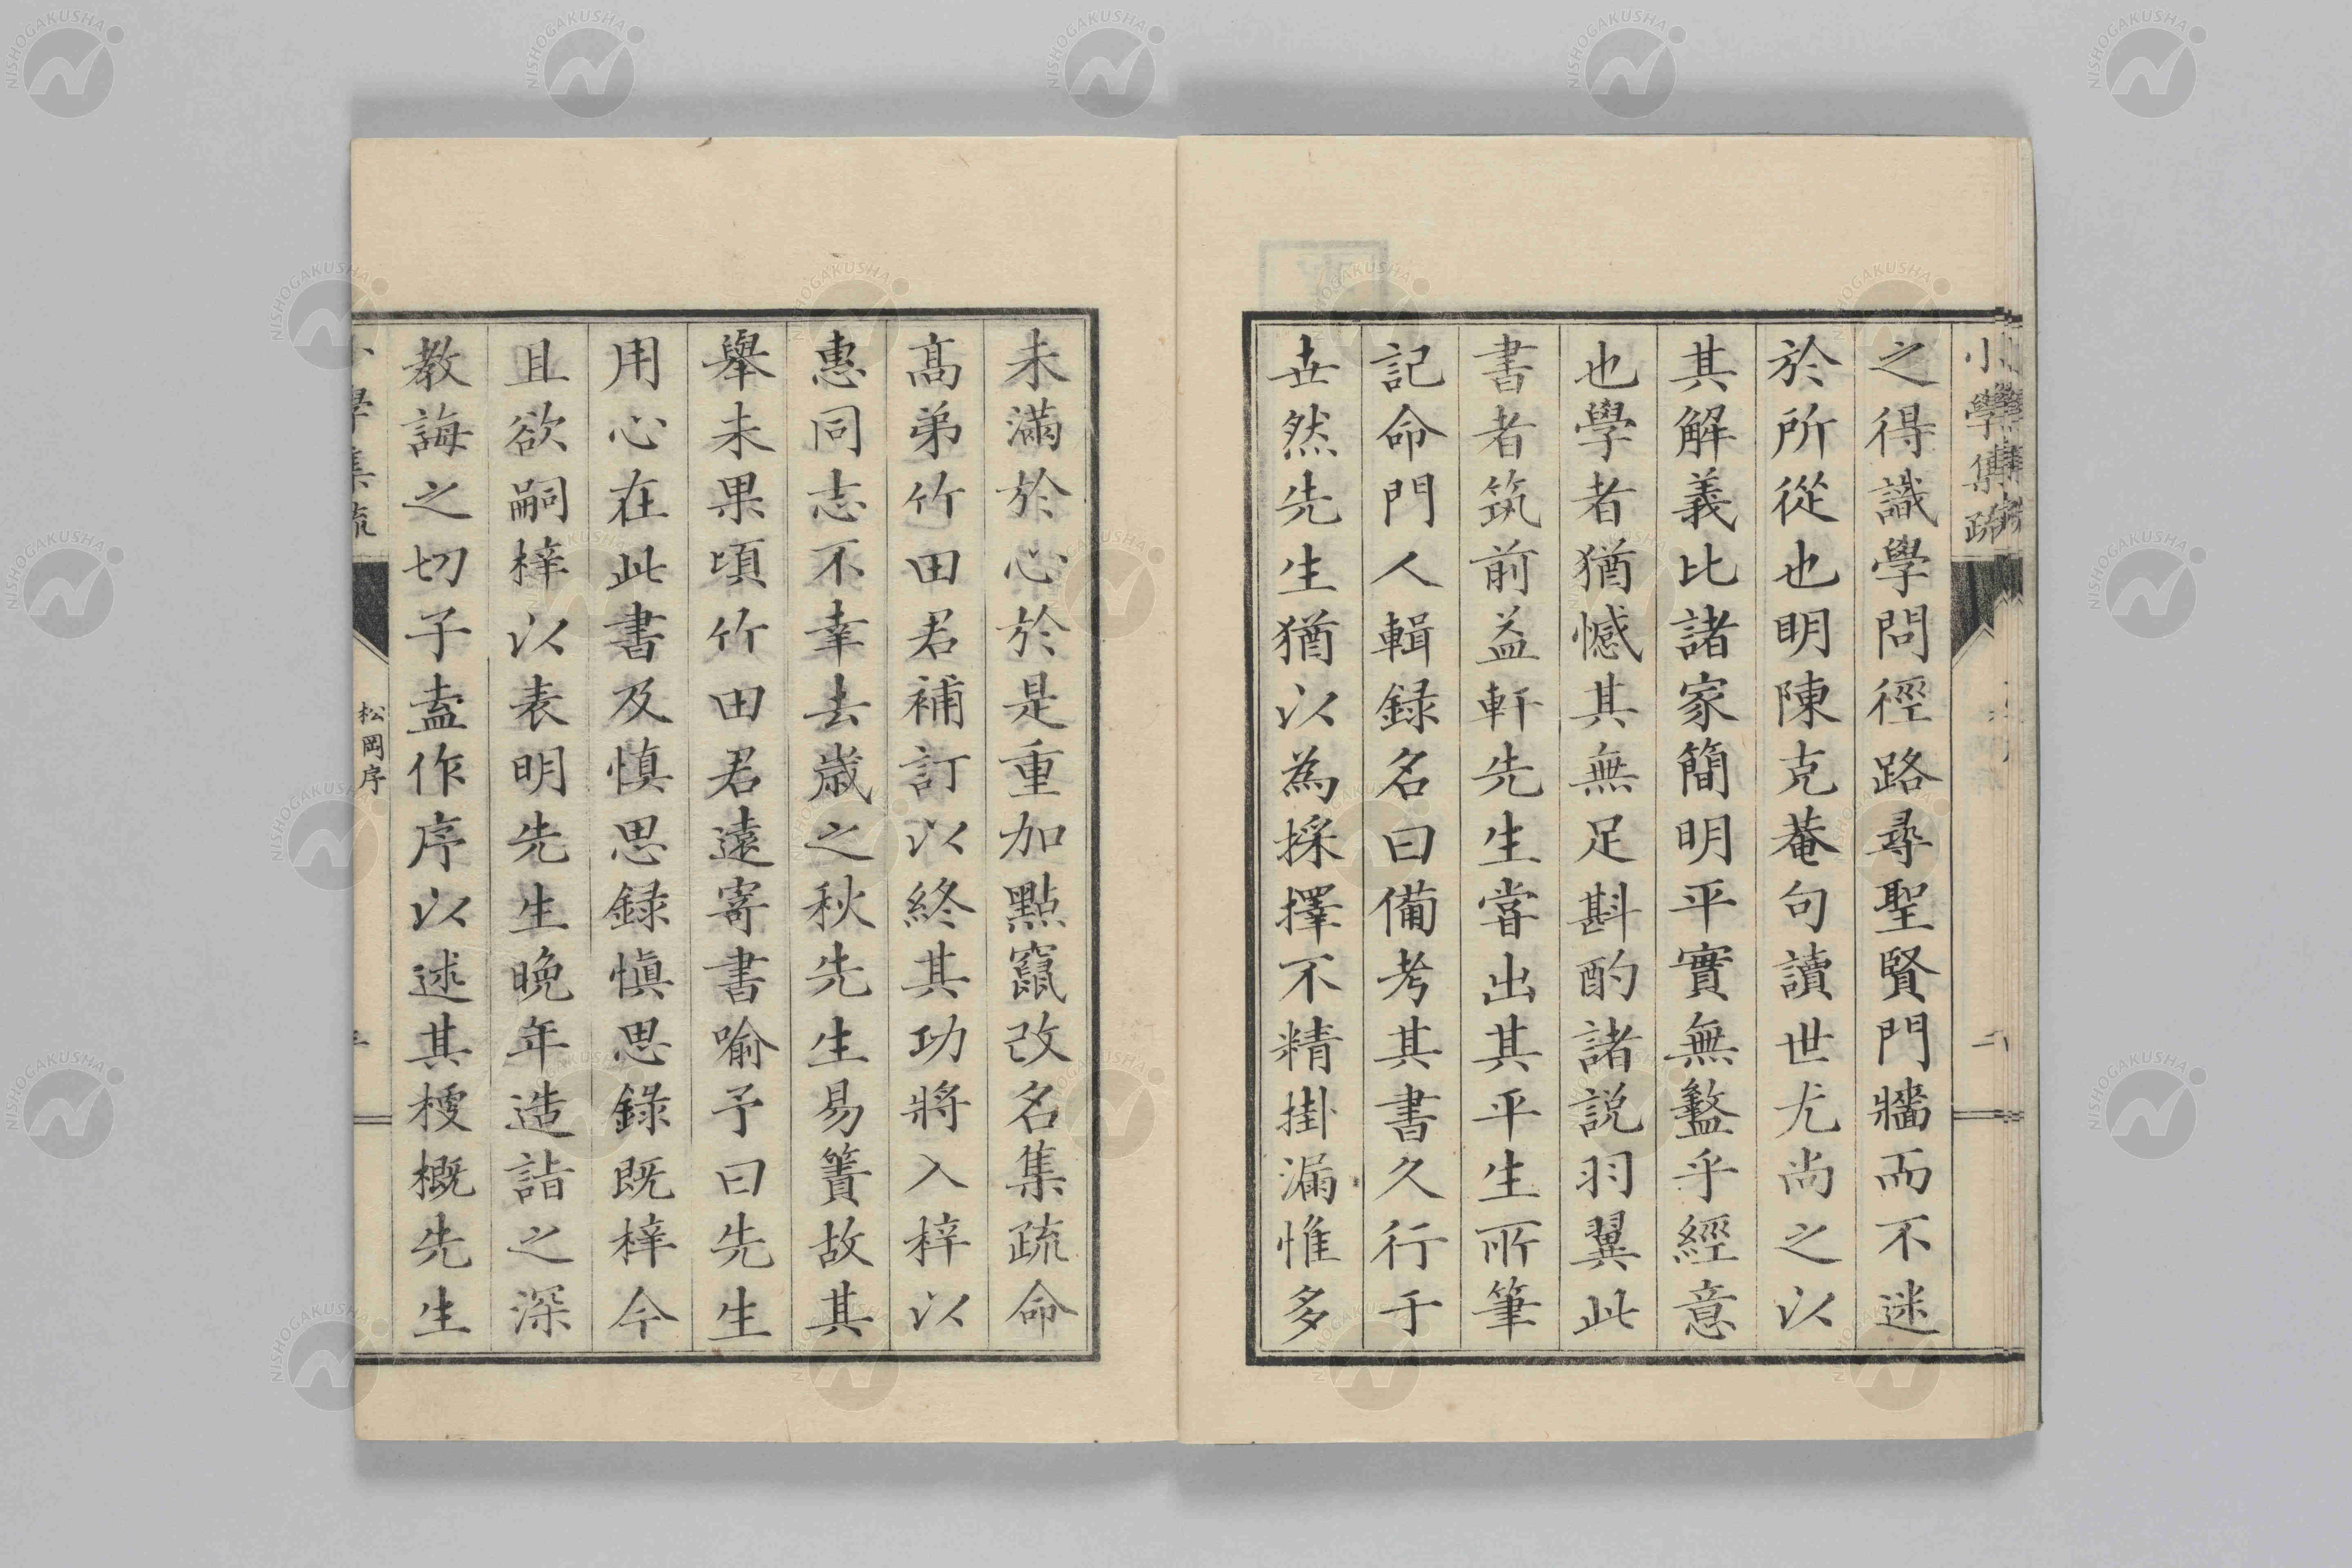 小學集疏
二
之得識學問徑路尋聖賢門牆而不迷
於所從也明陳克菴句讀世尤尚之以
其解義比諸家簡明平實無盭乎經意
也學者猶憾其無足斟酌諸説羽翼此
書者筑前益軒先生嘗出其平生所筆
記命門人輯録名曰備考其書久行于
世然先生猶以為採擇不精掛漏惟多
未滿於心於是重加點竄改名集疏命
髙弟竹田君補訂以終其功將入梓以
惠同志不幸去歳之秋先生易簀故其
舉未果頃竹田君遠寄書喻予曰先生
用心在此書及慎思録慎思錄既梓今
且欲嗣梓以表明先生晩年造詣之深
教誨之切子盍作序以述其梗概先生
小學集疏
松岡序
NISHOGAKUSHA